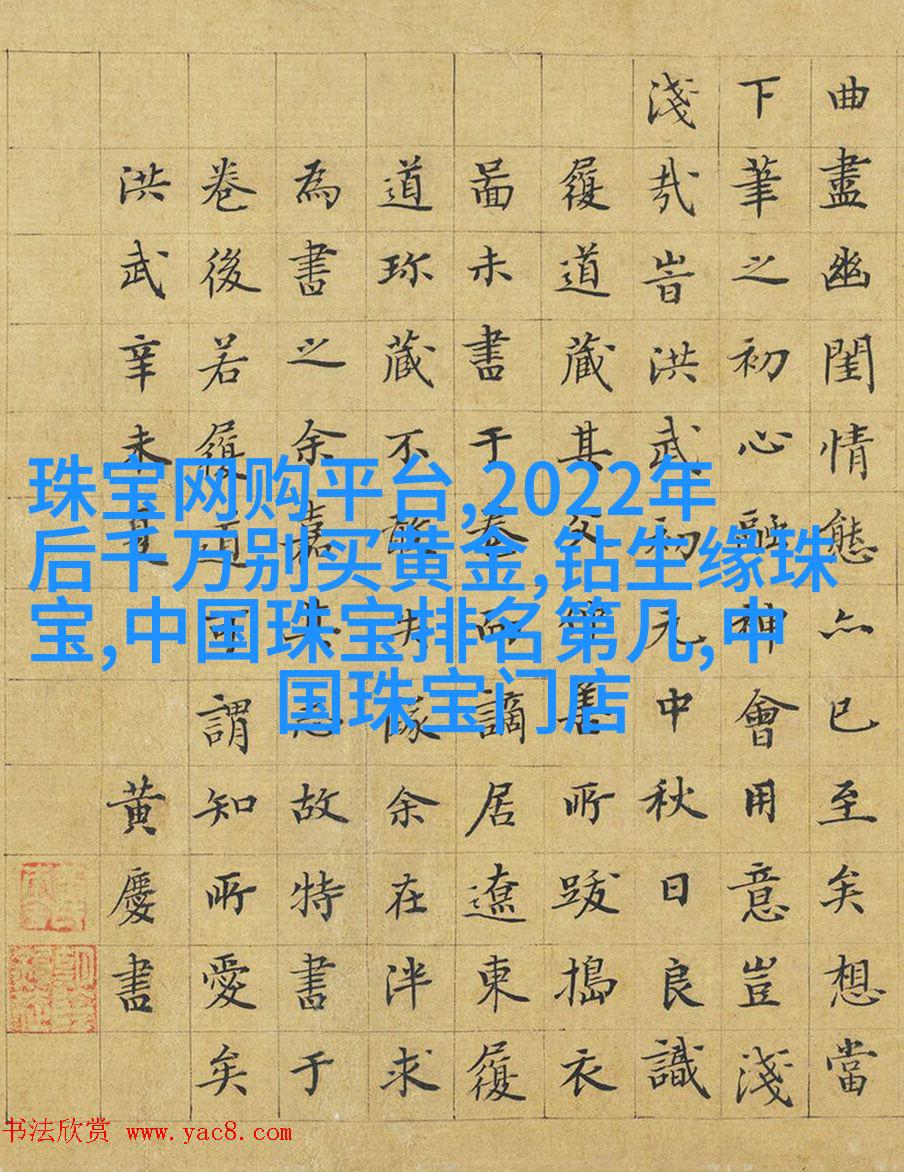 曲盡幽閨情態亦已至矣想當
下筆之初心融神會用意豈淺
淺哉旹洪武初元中秋日良識
履道藏其父善所跋搗衣
啚未書于卷而謫居遼東履
道珎藏不敢失隊余在泮求
為書之余嘉其志故特書于
卷後若履道可謂知所愛矣
洪武辛未夏黃慶書
珠宝网购平台,2022年
后千万别买黄金,钻生缘珠
宝,中国珠宝排名第几,中
国珠宝门店
书法欣赏 www.yac8.com